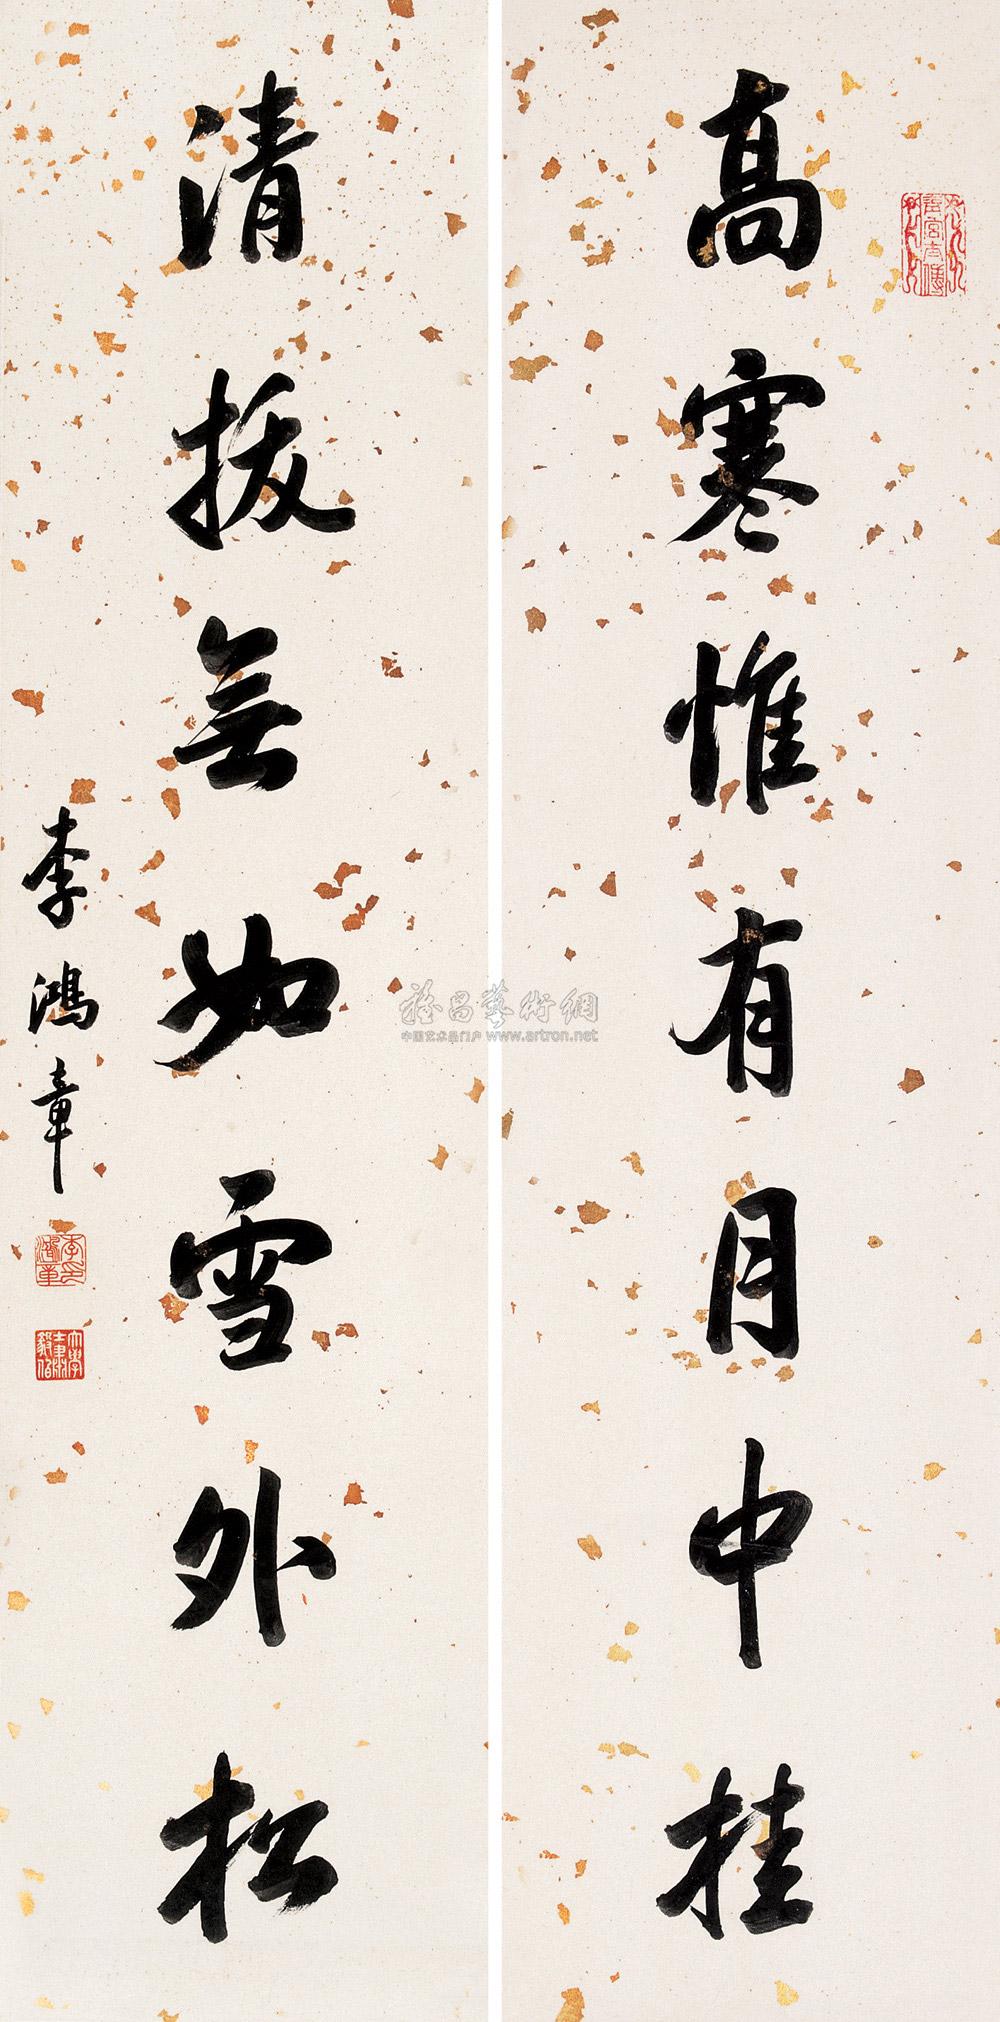 高寒惟有月中桂
清拔無如雪外松
李鴻章
雅昌藝術網
中国艺术品门户 www.artron.net